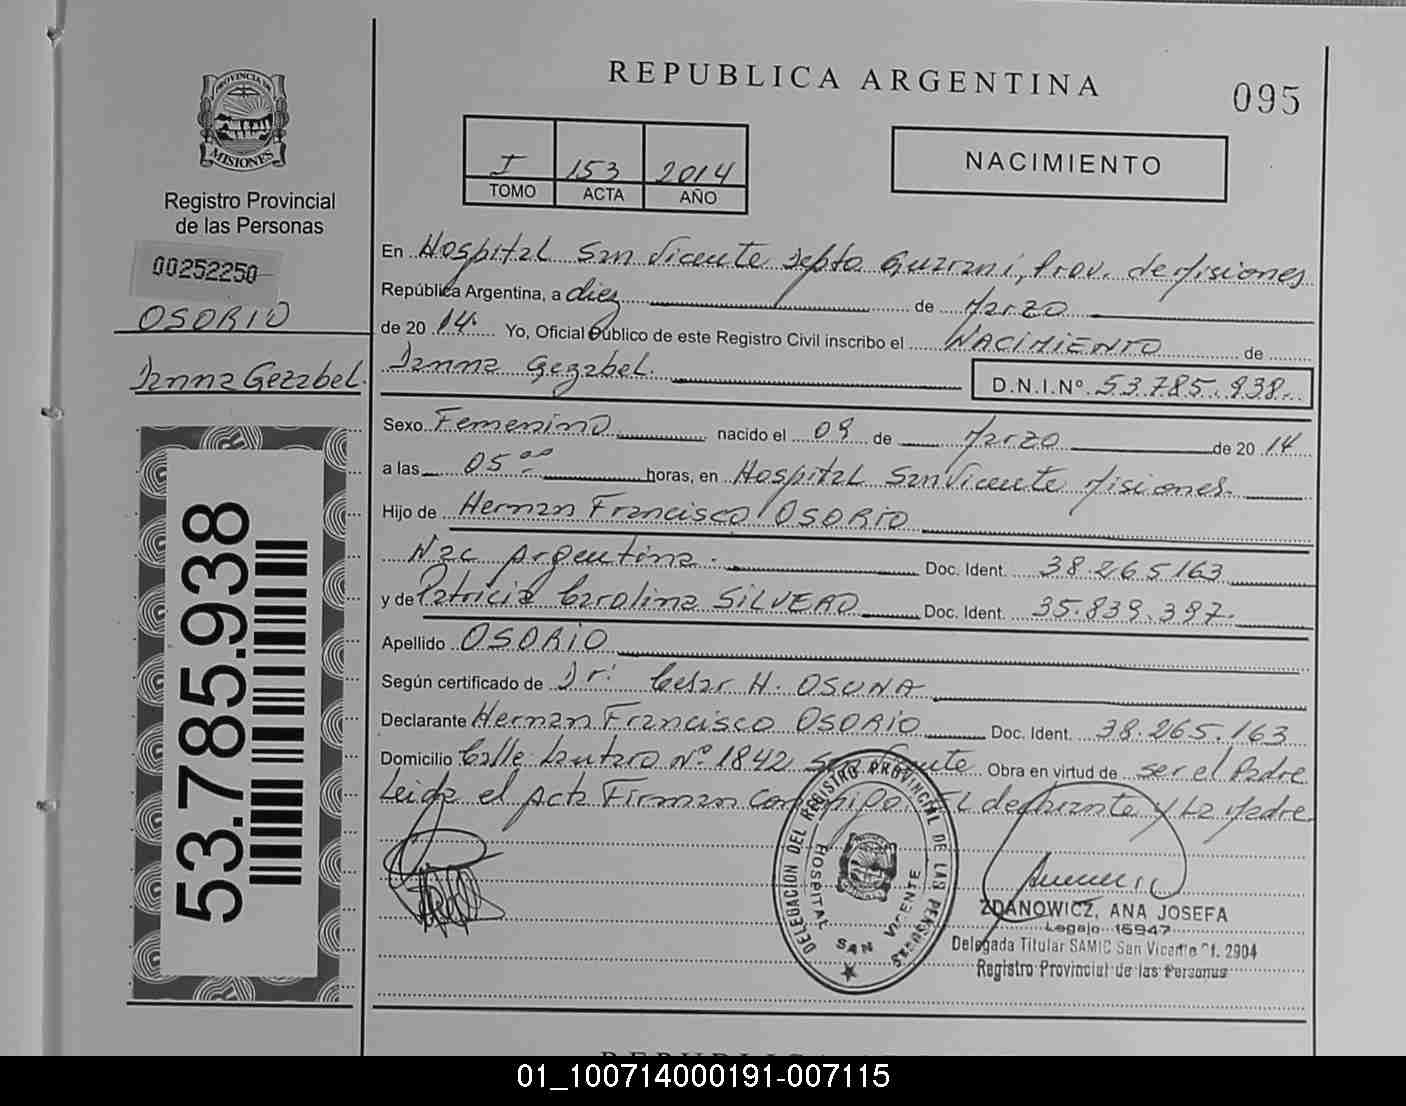 REPUBLICA ARGENTINA
095
PROVINCIA DE
MISIONES
Registro Provincial
de las Personas
00252250
OSORIO
Ianna Gezabel.
53.785.938
I 153 2014
TOMO ACTA AÑO
NACIMIENTO
En Hospital San Vicente Depto Guarani, Prov. de Misiones
República Argentina, a diez de Marzo
de 2014. Yo, Oficial Público de este Registro Civil inscribo el NACIMIENTO de
Ianna Gezabel. D.N.I.Nº 53.785.938
Sexo Femenino nacido el 09 de Marzo de 2014
a las 05 00 horas, en Hospital San Vicente Misiones.
Hijo de Hernan Francisco OSORIO
Nac Argentina. Doc. Ident. 38.265163
y de Patricia Carolina SILVERO Doc. Ident. 35.839.397.
Apellido OSORIO
Según certificado de Dr. Cesar H. OSUNA
Declarante Hernan Francisco OSORIO Doc. Ident. 38.265.163
Domicilio Calle Lautaro Nº 1842 San Vicente Obra en virtud de ser el Padre
Leida el Acta Firman Conmigo el declarante y La Madre
DELEGACION DEL REGISTRO PROVINCIAL DE LAS PERSONAS
HOSPITAL SAN VICENTE
ZDANOWICZ, ANA JOSEFA
Legajo 15947
Delegada Titular SAMIC San Vicente Of. 2904
Registro Provincial de las Personas
01_100714000191-007115